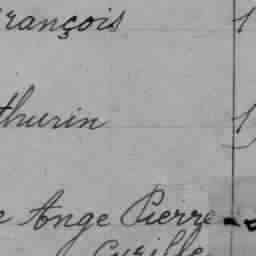 rançois
thurin
e Ange Pierre
Cyrille